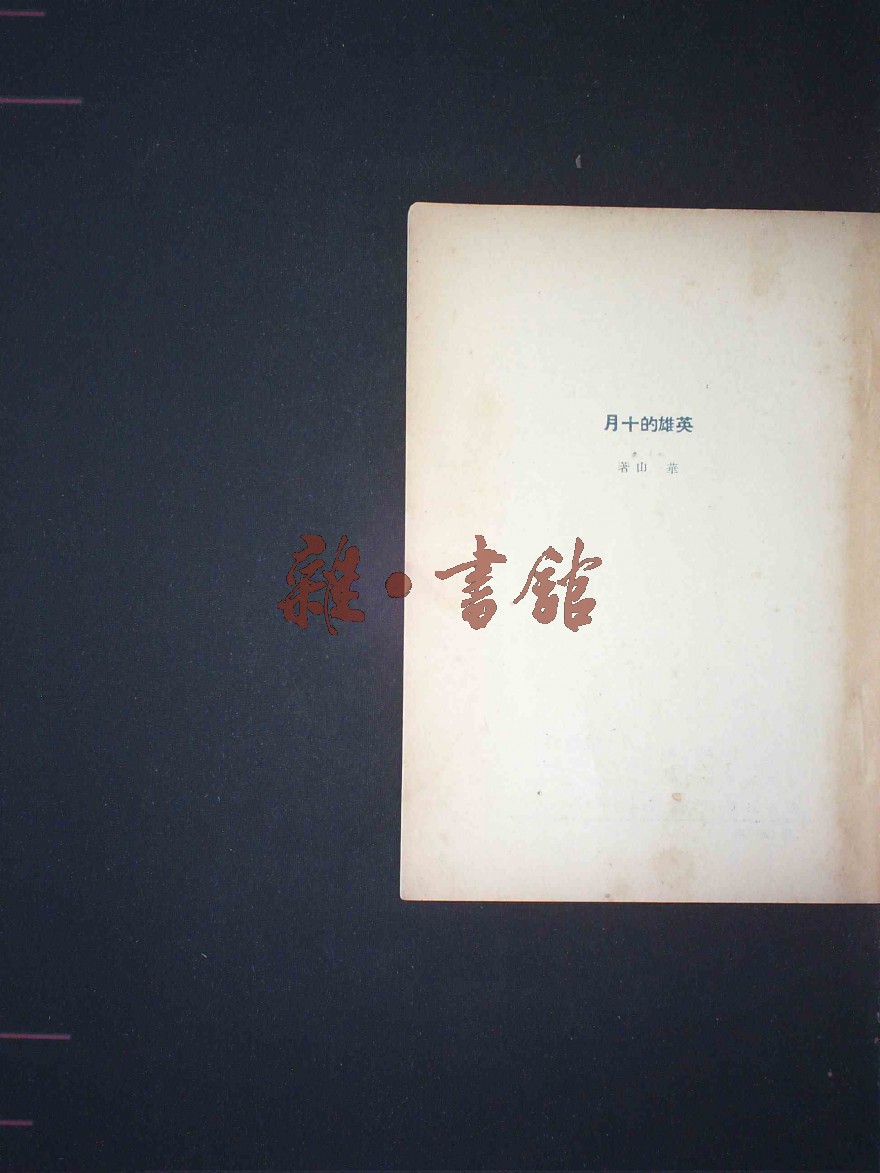 英雄的十月
華山著
雜·書館